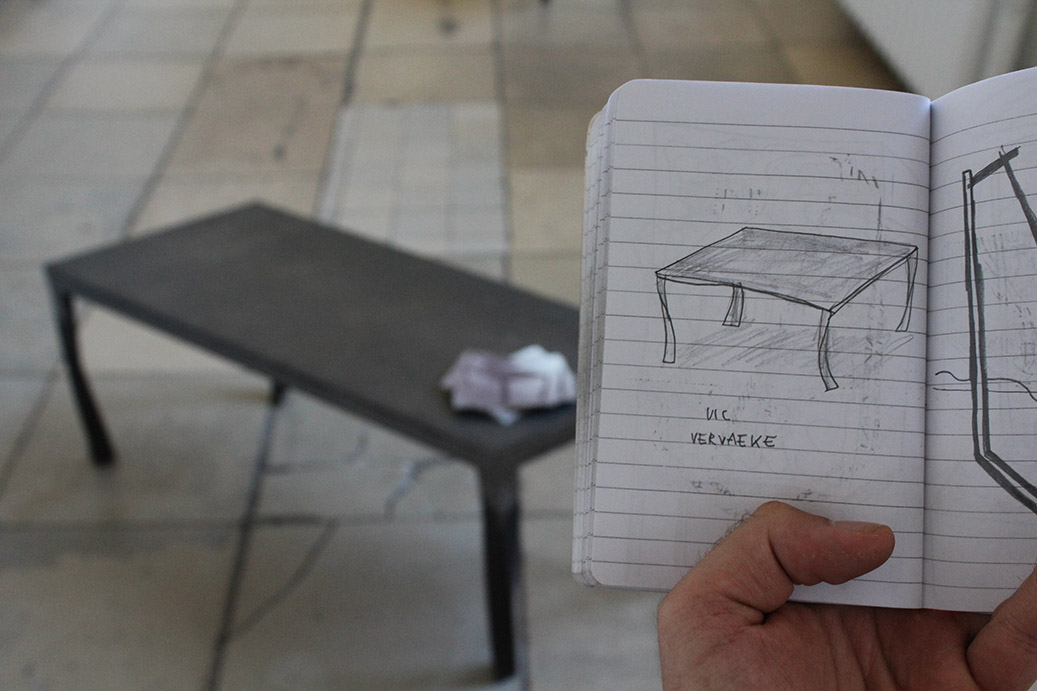 VIC
VERVAEKE